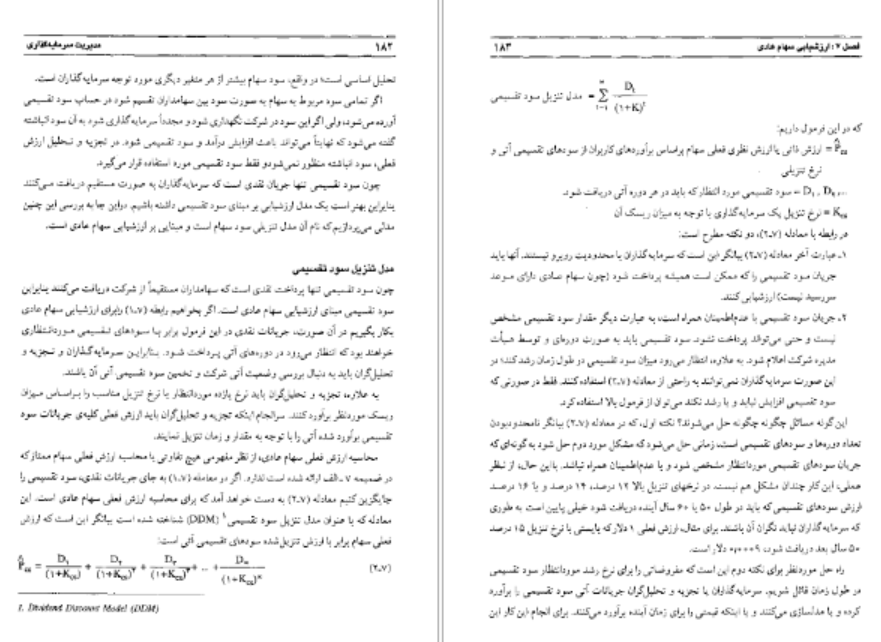 ۱۸۲ مدیریت سرمایه‌گذاری
تحلیل اساسی است؛ در واقع، سود سهام بیشتر از هر متغیر دیگری مورد توجه سرمایه‌گذاران است.
اگر تمامی سود مربوط به سهام به صورت سود بین سهامداران تقسیم شود در حساب سود تقسیمی
آورده می‌شود، ولی اگر این سود در شرکت نگهداری شود و مجدداً سرمایه‌گذاری شود به آن سود انباشته
گفته می‌شود که نهایتاً می‌تواند باعث افزایش درآمد و سود تقسیمی شود. در تجزیه و تحلیل ارزش
فعلی، سود انباشته منظور نمی‌شود و فقط سود تقسیمی مورد استفاده قرار می‌گیرد.
چون سود تقسیمی تنها جریان نقدی است که سرمایه‌گذاران به صورت مستقیم دریافت می‌کنند
بنابراین بهتر است یک مدل ارزشیابی بر مبنای سود تقسیمی داشته باشیم. در این جا به بررسی این چنین
مدلی می‌پردازیم که نام آن مدل تنزیلی سود سهام است و مبنایی بر ارزشیابی سهام عادی است.
مدل تنزیل سود تقسیمی
چون سود تقسیمی تنها پرداخت نقدی است که سهامداران مستقیماً از شرکت دریافت می‌کنند بنابراین
سود تقسیمی مبنای ارزشیابی سهام عادی است. اگر بخواهیم رابطه (۷ـ۱) را برای ارزشیابی سهام عادی
بکار بگیریم در آن صورت، جریانات نقدی در این فرمول برابر با سودهای تقسیمی مورد انتظاری
خواهند بود که انتظار می‌رود در دوره‌های آتی پرداخت شود. بنابراین سرمایه‌گذاران و تجزیه و
تحلیل‌گران باید به دنبال بررسی وضعیت آتی شرکت و تخمین سود تقسیمی آتی آن باشند.
به علاوه، تجزیه و تحلیل‌گران باید نرخ بازده مورد انتظار یا نرخ تنزیل مناسب را براساس میزان
ریسک مورد نظر برآورد کنند. سرانجام اینکه تجزیه و تحلیل‌گران باید ارزش فعلی کلیه‌ی جریانات سود
تقسیمی برآورد شده آتی را با توجه به مقدار و زمان تنزیل نمایند.
محاسبه ارزش فعلی سهام عادی، از نظر مفهومی هیچ تفاوتی با محاسبه ارزش فعلی سهام ممتاز که
در ضمیمه ۷ ـ الف ارائه شده است ندارد. اگر در معامله (۷ـ۱) به جای جریانات نقدی، سود تقسیمی را
جایگزین کنیم معادله (۷ـ۲) به دست خواهد آمد که برای محاسبه ارزش فعلی سهام عادی است. این
معادله که با عنوان مدل تنزیل سود تقسیمی۱ (DDM) شناخته شده است بیانگر این است که ارزش
فعلی سهام برابر با ارزش تنزیل شده سودهای تقسیمی آتی است:
P̂cs = D۱/(۱+Kcs) + D۲/(۱+Kcs)۲ + D۳/(۱+Kcs)۳ + ... + D∞/(۱+Kcs)∞ (۷ـ۲)
1. Dividend Discount Model (DDM)
فصل ۷ : ارزشیابی سهام عادی ۱۸۳
مدل تنزیل سود تقسیمی = ∑ Dt/(۱+K)t
که در این فرمول داریم:
P̂cs = ارزش ذاتی یا ارزش نظری فعلی سهام براساس برآوردهای کاربران از سودهای تقسیمی آتی و
نرخ تنزیلی
D۱ , D۲,... = سود تقسیمی مورد انتظار که باید در هر دوره آتی دریافت شود.
Kcs = نرخ تنزیل یک سرمایه‌گذاری با توجه به میزان ریسک آن
در رابطه با معادله (۷ـ۲)، دو نکته مطرح است:
۱ـ عبارت آخر معادله (۷ـ۲) بیانگر این است که سرمایه‌گذاران با محدودیت روبرو نیستند. آنها باید
جریان سود تقسیمی را که ممکن است همیشه پرداخت شود (چون سهام عادی دارای موعد
سررسید نیست) ارزشیابی کنند.
۲ـ جریان سود تقسیمی با عدم اطمینان همراه است، به عبارت دیگر مقدار سود تقسیمی مشخص
نیست و حتی می‌تواند پرداخت نشود. سود تقسیمی باید به صورت دوره‌ای و توسط هیأت
مدیره شرکت اعلام شود. به علاوه، انتظار می‌رود میزان سود تقسیمی در طول زمان رشد کند؛ در
این صورت سرمایه گذاران نمی‌توانند به راحتی از معادله (۷ـ۲) استفاده کنند. فقط در صورتی که
سود تقسیمی افزایش نیابد و یا رشد نکند می‌توان از فرمول بالا استفاده کرد.
این گونه مسائل چگونه حل می‌شوند؟ نکته اول، که در معادله (۷ـ۲) بیانگر نامحدود بودن
تعداد دوره‌ها و سودهای تقسیمی است، زمانی حل می‌شود که مشکل مورد دوم حل شود به گونه‌ای که
جریان سودهای تقسیمی مورد انتظار مشخص شود و با عدم اطمینان همراه نباشد. با این حال، از نظر
عملی، این کار چندان مشکل هم نیست. در نرخهای تنزیل بالا ۱۲ درصد، ۱۴ درصد و یا ۱۶ درصد
ارزش سودهای تقسیمی که باید در طول ۵۰ یا ۶۰ سال آینده دریافت شود خیلی پایین است به طوری
که سرمایه گذاران نباید نگران آن باشند. برای مثال، ارزش فعلی ۱ دلار که بایستی با نرخ تنزیل ۱۵ درصد
۵۰ سال بعد دریافت شود، ۰/۰۰۰۹ دلار است.
راه حل مورد نظر برای نکته دوم این است که مفروضاتی را برای نرخ رشد مورد انتظار سود تقسیمی
در طول زمان قائل شویم. سرمایه‌گذاران یا تجزیه و تحلیل‌گران جریانات آتی سود تقسیمی را برآورد
کرده و یا مدلسازی می‌کنند و یا اینکه قیمتی را برای زمان آینده برآورد می‌کنند. برای انجام این کار این